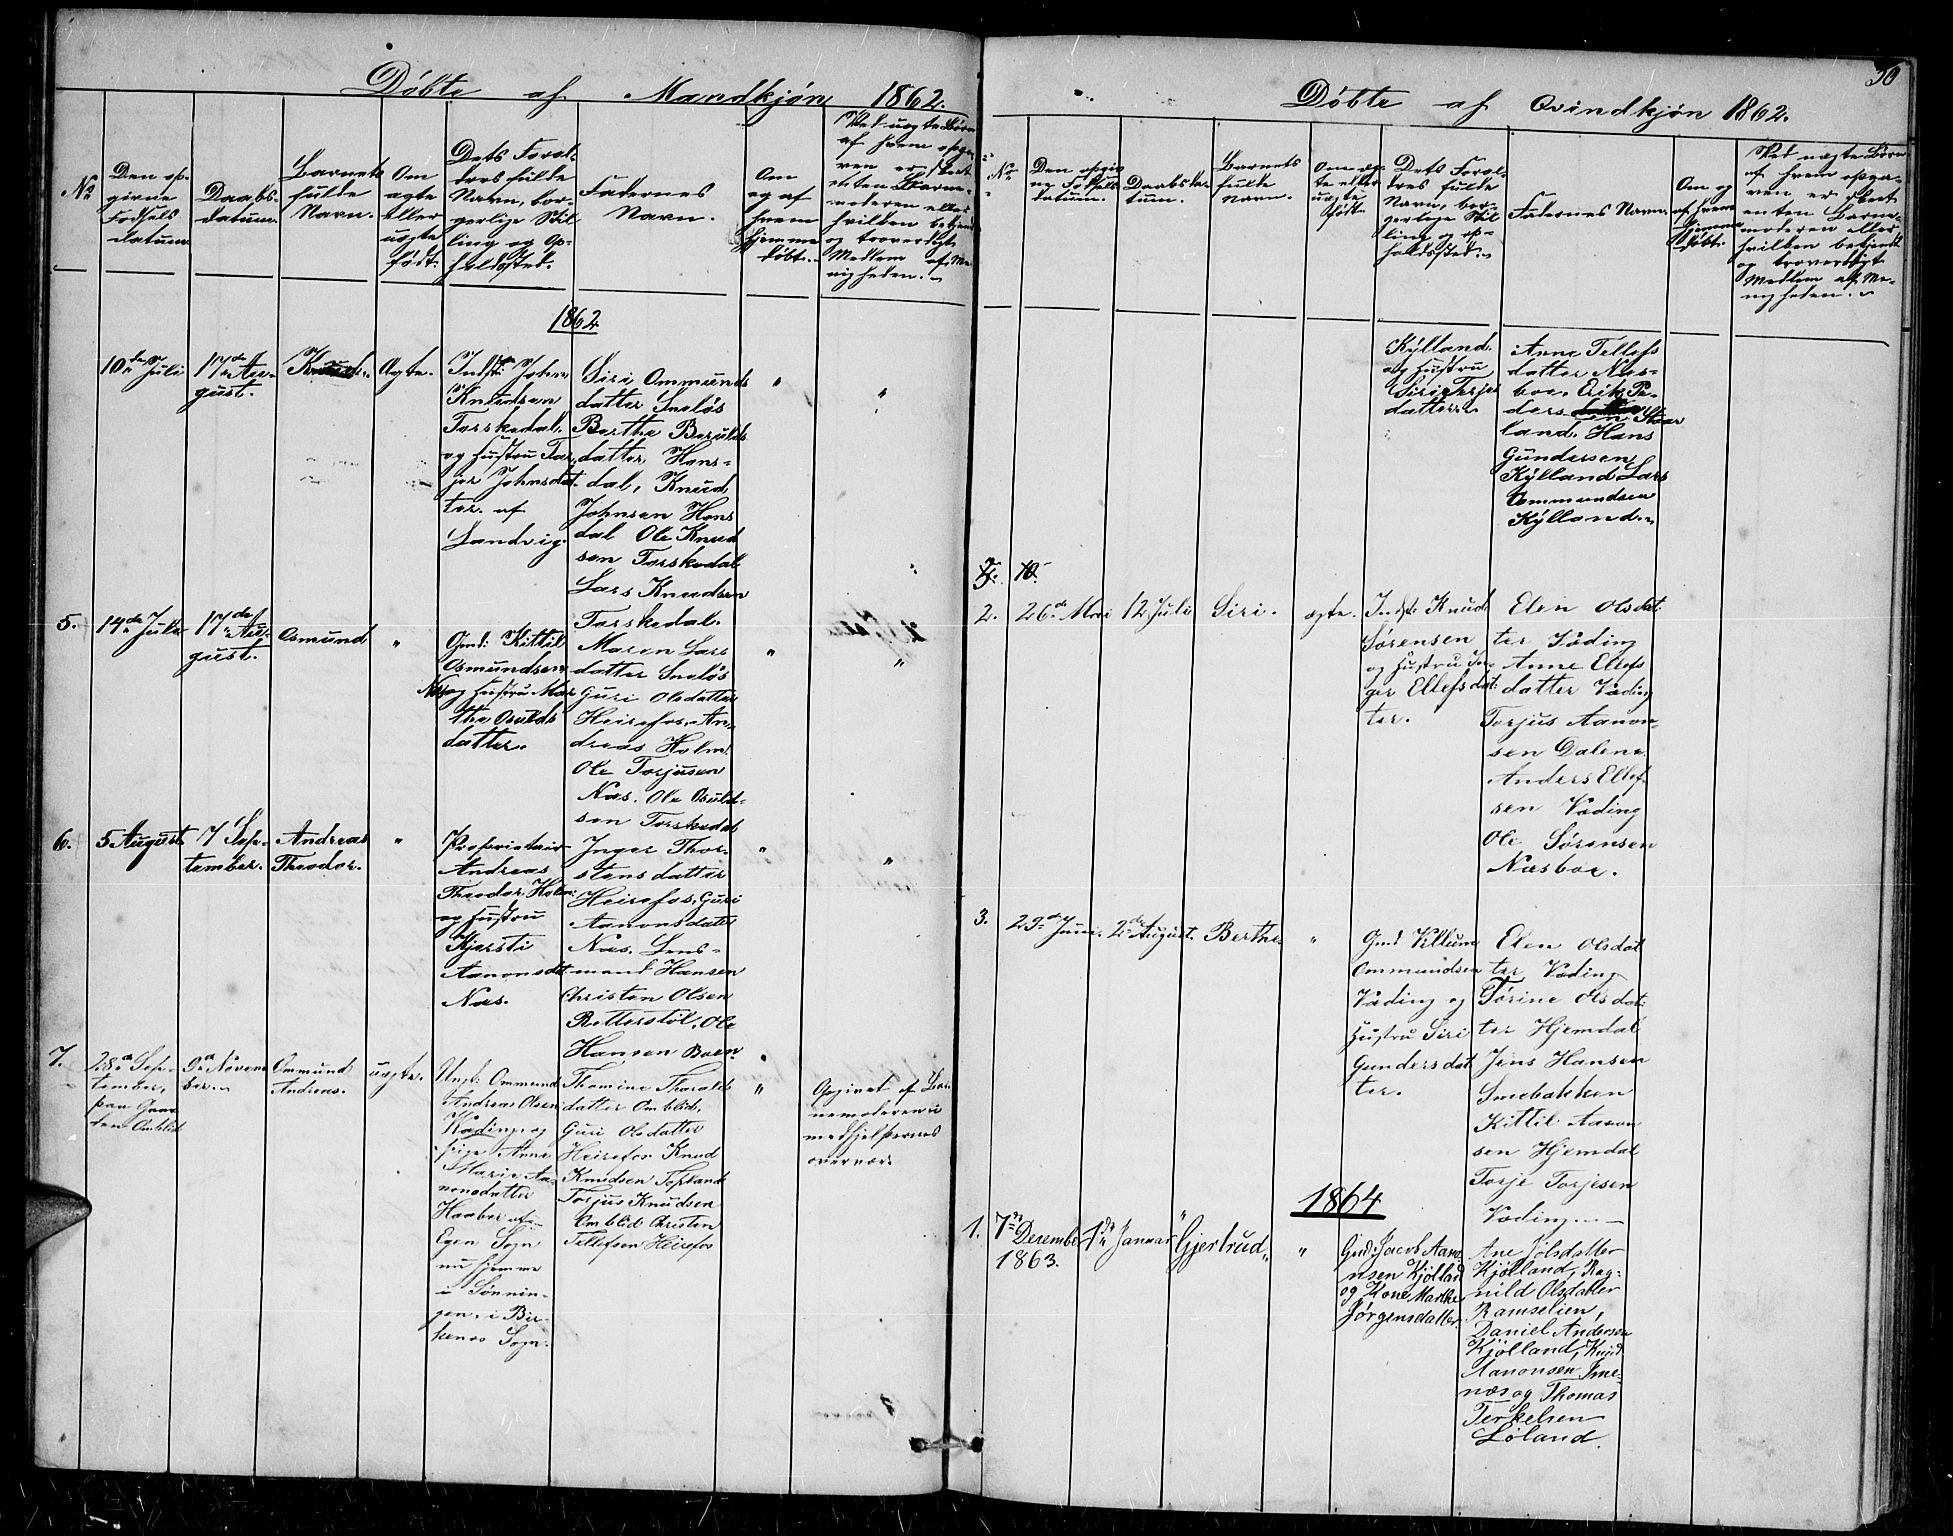 Døbte af Mandkjøn 1862.
No
Den op-
givne
Fødsels
datum
Daabs-
datum.
Barnets
fulde
Navn.
Om
ægte
eller
uægte
født.
Dets Foræl-
dres fulde
Navn, bor-
gerlige Stil
ling og Op-
holdssted.
Fadernes
Navn.
Om
og af
hvem
hjemme
døbt.
Ved uægte Børn
af hvem opga-
ven er skeet
enten Barne-
moderen eller
hvilken bekjendt
og troværdigt
Medlem af Me-
nigheden.
1862
10de Juli
17de Au-
gust.
Knud.
Ægte.
Indst: John
Knudsen
Torskedal.
og Hustru Tar
jer Johnsdat
ter. af
Landvig.
Siri Ommunds
datter Sneløs
Berthe Berulds
datter Hons-
dal, Knud
Johnsen Hons
dal Ole Knud
sen Torskedal
Lars Knudsen
Torskedal.
5.
14de Juli
17de Au-
gust.
Osmund
"
Gmd: Kittil
Osmundsen
Næs og Hustru Mar
the Osulds
datter.
Maren Lars
datter Sneløs
Guri Olsdatter
Heirefos, An-
dreas Holm
Ole Torjusen
Næs. Ole Osuld-
sen Torskedal
6.
5 August
7 Sep-
tember.
Andreas
Theodor.
"
Proprietair
Andreas
Theodor Holm
og Hustru
Kjersti
Aanonsdat
Næs.
Inger Thor-
stensdatter
Heirefos, Guri
Aanonsdatt
Næs. Lens-
mand Hansen
Christen Olsen
Retterstøl, Ole
Hansen Boen
7.
28de Sep-
tember,
paa Gaar
den Omblid
9de Novem
ber.
Ommund
Andreas.
uægte.
Ungk: Ommund
Andreas Olsen
Væding og
Pige Anne
Marie Aa-
nonsdatter
Haaber af
Egen Sogn
nu hjemme
i Tønnin-
gen, i Bir-
kenes Sogn.
Thomine Tharalds
datter Omblid,
Guri Olsdatter
Heirefos Knud
Knudsen Topland
Torjus Knudsen
Omblid Christen
Tellefsen Heirefos
"
Opgivet af Bar-
nemoderen i
medhjelpernes
overvær.
Døbte af Qvindkjøn 1862.
50
No
Den opgiv
ne Fødsels
datum.
Daabsda-
tum.
Barnets
fulde
Navn.
Om æg-
te eller
uægte
født.
Dets Foræl-
dres fulde
Navn, bor-
gerlige Stil-
ling og Op-
holdssted.
Fadernes Navn.
Om og
af hvem
hjemme
døbt.
Ved uægte Børn
af hvem opga-
ven er skeet
enten Barne-
moderen eller
hvilken bekjendt
og troværdigt
Medlem af Me-
nigheden.
Kylland
og Hustru
Siri Terjes
datter.
Anne Tellefs
datter Næs-
boe. Erik Pe-
ders
land. Hans
Gundersen
Kylland Lars
Ommundsen
Kylland.
2.
26de Mai
12 Juli
Siri.
ægte.
Indst. Knud
Sørensen
og Hustru In-
ger Ellefsdat:
ter.
Elen Olsdat
ter Væding
Anne Ellefs
datter Væding
Torjus Aanon-
sen Dalene
Anders Ellef-
sen Væding
Ole Sørensen
Næsboe.
3.
29de Juni.
2de August.
Berthe
"
Gmd Villum
Ommundsen
Væding og
Hustru Siri
Gundersdat
ter.
Elen Olsdat
ter Væding
Tørine Olsdat
ter Hjemdal
Jens Hansen
Smebakken
Kittil Aanon
sen Hjemdal
Torje Torjesen
Væding.
1864
1.
7de December
1863.
1de Januar
Gjertrud
"
Gmd: Jacob Aano
nsen Kjølland
og Kone Marthe
Jørgensdatter.
Ane Jølsdatter
Kjølland, Rag-
nild Olsdatter
Ramselien,
Daniel Andersen
Kjølland, Knud
Aanonsen Ime-
næs og Thomas
Terkelsen
Løland.